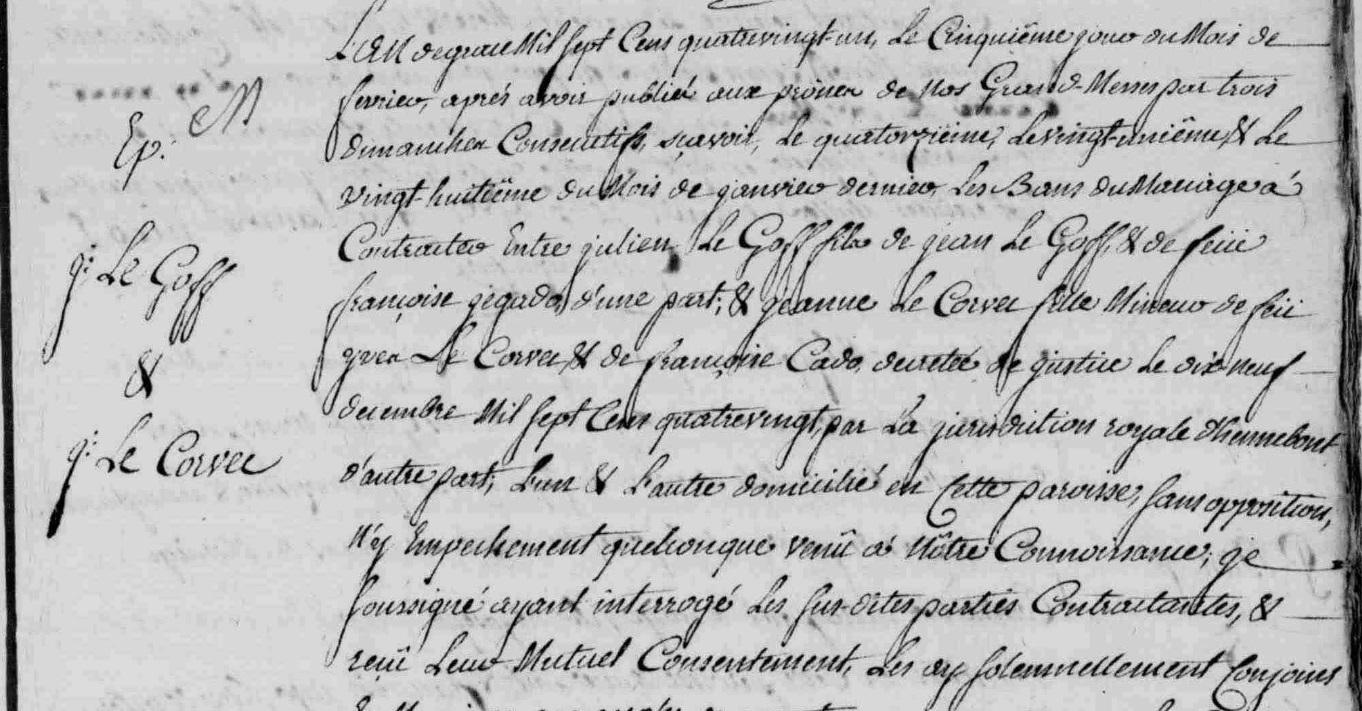 M
Ep:
j: Le Goff
&
j: Le Corvec
L'an de grace Mil sept Cens quatrevingt-un, Le Cinquiême jour du Mois de
fevrier, aprés avoir publié aux prônes de Nos Grand-Messes par trois
dimanches Consecutifs, sçavoir, Le quatorziéme, Le vingt-uniême, & Le
vingt-huitiême du Mois de janvier dernier, Les Bans du Mariage á
Contracter Entre julien Le Goff fils de jean Le Goff, & de feüe
françoise jegado, d'une part; & jeanne Le Corvec fille Mineur de feü
yves Le Corvec, & de françoise Cado, decretée de justice Le dix-neuf
decembre Mil sept Cens quatrevingt, par La jurisdition royale d'hennebont
d'autre part, L'un & L'autre domicilié en Cette paroisse, sans opposition,
N'y Empechement quelconque venû á Nôtre Connoissance; je
soussigné ayant interrogé Les sus-dites parties Contractantes, &
reçû Leur Mutuel Consentement, Les ay solemnellement Conjoins